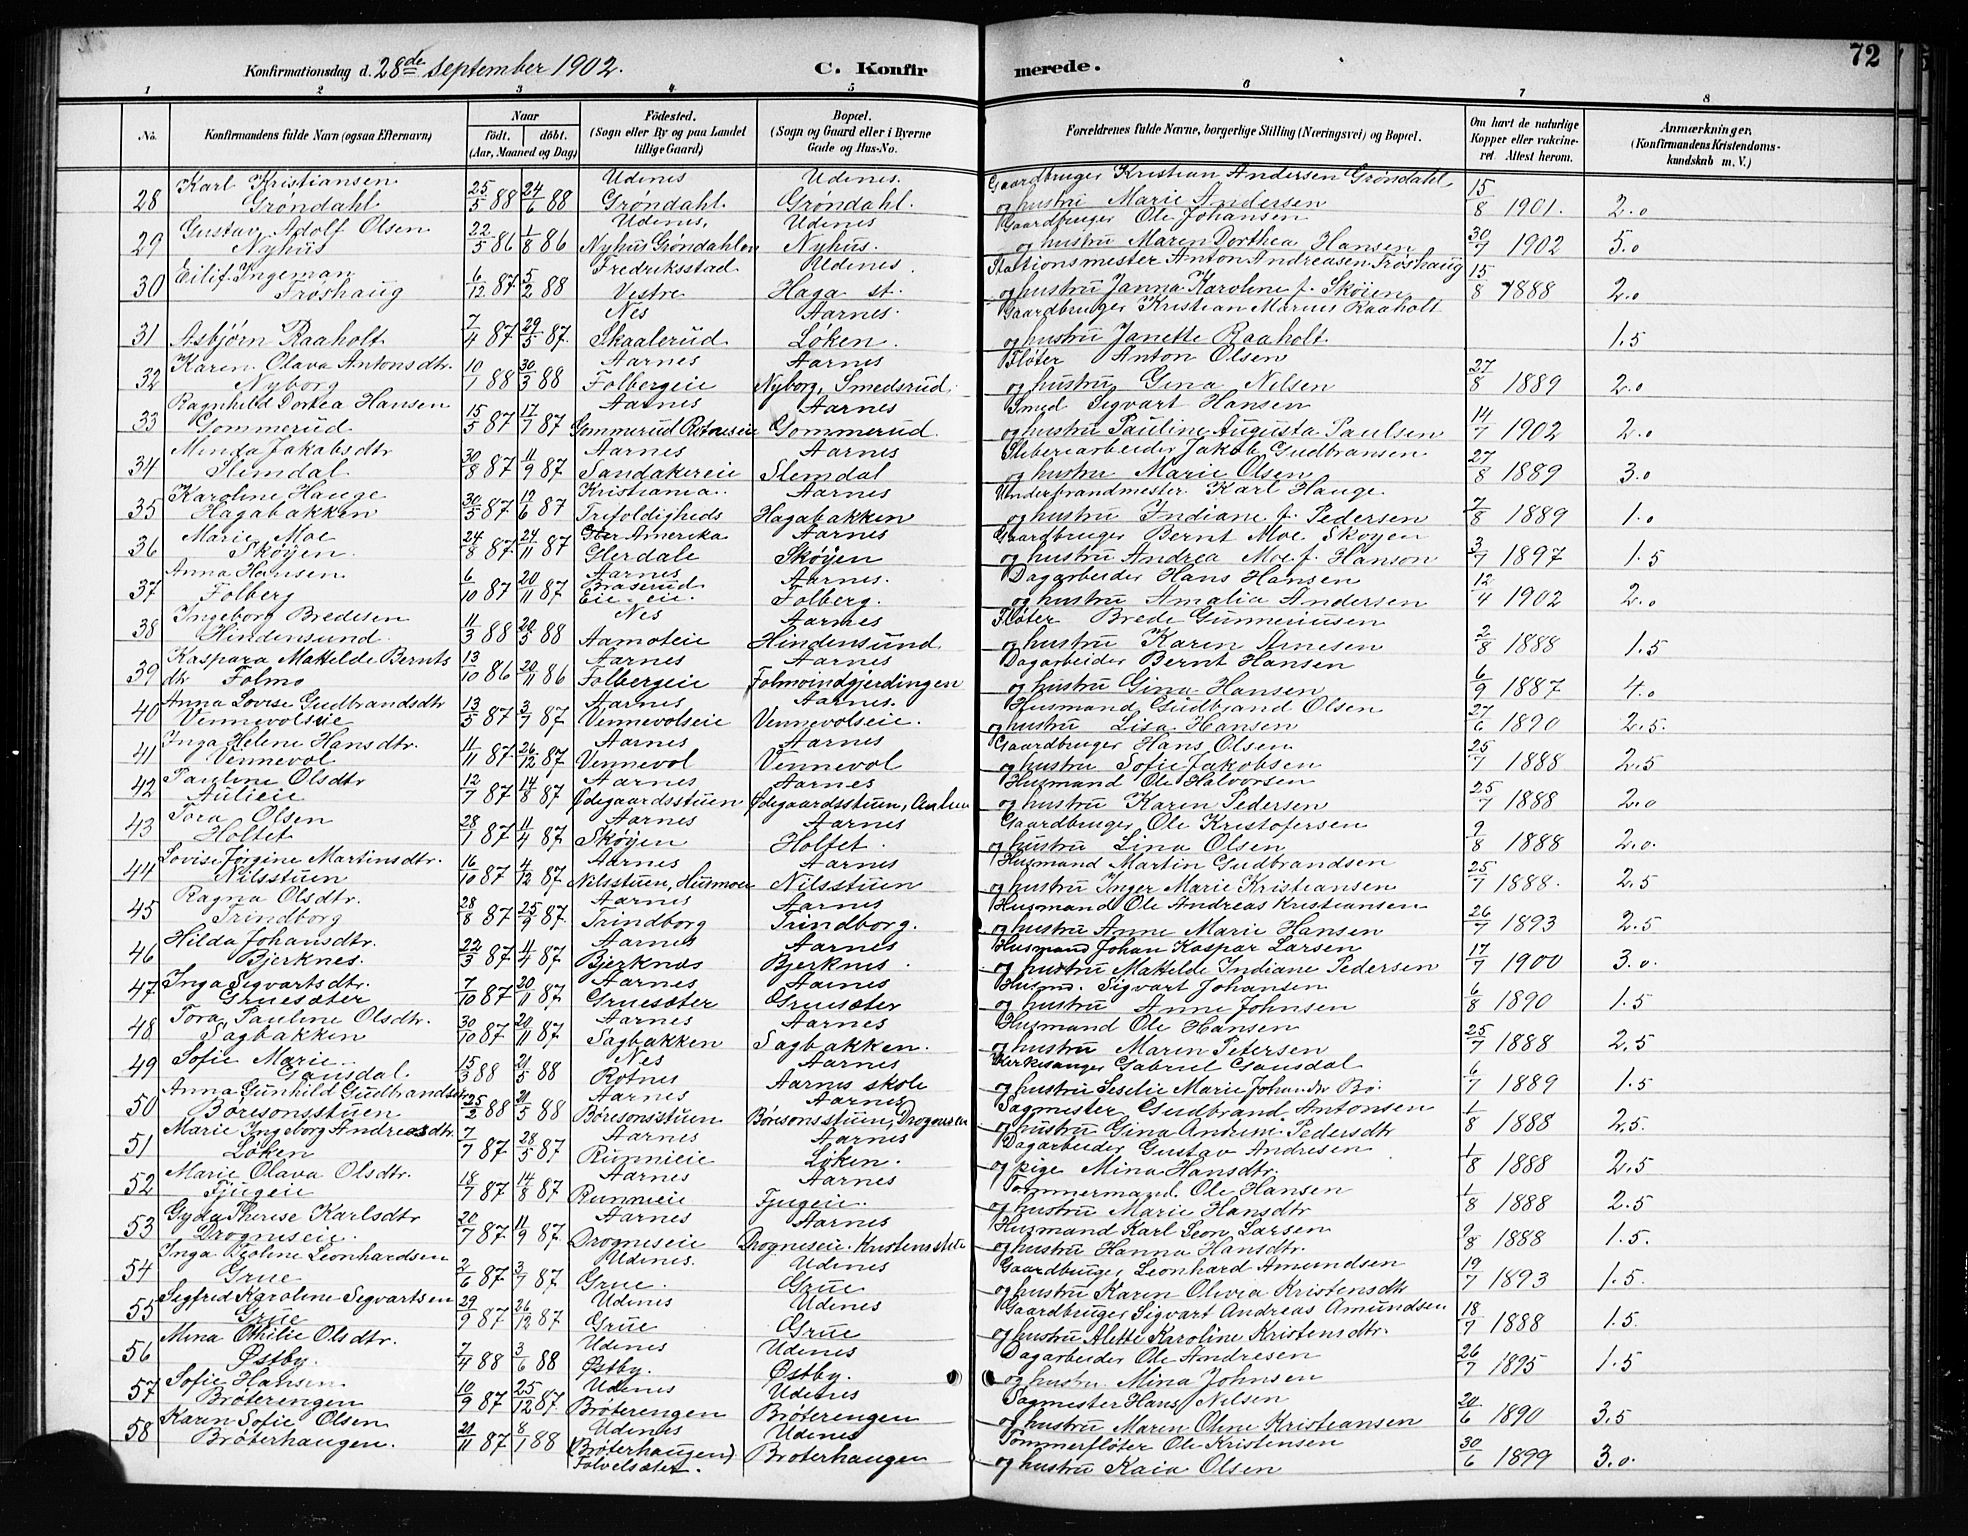 72
Konfirmationsdag d. 28de September 1902. C. Konfirmerede.
1 2 3 4 5 6 7 8
No. Konfirmandens fulde Navn (ogsaa Efternavn) Naar født. døbt. (Aar, Maaned og Dag) Fødested. (Sogn eller By og paa Landet tillige Gaard) Bopæl. (Sogn og Gaard eller i Byerne Gade og Hus-No. Forældrenes fulde Navne, borgerlige Stilling (Næringsvei) og Bopæl. Om havt de naturlige Kopper eller vakcineret. Attest herom. Anmærkninger. (Konfirmandens Kristendomskundskab m. V.)
Karl Kristiansen Udenes Udenes. Gaardbruger Kristian Andersen Grøndahl
28 Grøndahl 25/5 88 24/6 88 Grøndahl. Grøndahl. og hustru Marie Andersen 15/8 1901. 2.0
Gustav Adolf Olsen Udenes, Udenes Gaardbruger Ole Johansen
29 Nyhus 22/5 86 1/8 86 Nyhus Grøndahl Nyhus. og hustru Maren Dorthea Hansen 30/7 1902 5.0
Eilif Ingeman Fredriksstad Udenes. Stationsmester Anton Andreasen Trøshaug
30 Trøshaug 6/12 87 5/2 88 Vestre Haga st. og hustru Janna Karoline f. Skøien 15/8 1888 2.0
Nes Aarnes. Gaardbruger Kristian Marius Raaholt
31 Asbjørn Raaholt 7/4 87 29/5 87. Skaalerud Løken. og hustru Janette Raaholt. 1.5
Karen Olava Antonsdtr. Aarnes Aarnes Fløter Anton Olsen
32 Nyborg 10/1 88 30/3 88 Folbergeie Nyborg, Smedsrud. og hustru Gina Nelsen 27/8 1889 2.0
Ragnhild Dorkea Hansen Aarnes Aarnes Smed Sigvart Hansen
33 Gommerud 15/5 87 17/7 87 Gommerud Rotneseie Gommerud. og hustru Pauline Augusta Paulsen 14/7 1902 2.0
Minda Jakobsdtr Aarnes Aarnes Sliberiarbeider Jakob Gudbransen
34 Slemdal. 30/8 87 11/9 87 Sandakereie Slemdal og hustru Marie Olsen 27/8 1889 3.0
Karoline Hauge Kristiania. Aarnes Underbrandmester Karl Hauge.
35 Hagabakken 30/5 87 12/6 87 Trefoldigheds Hagabakken og hustru Indiane f. Pedersen 7/8 1889 1.0
Marie Moe Amerika Aarnes Gaardbruger Bernt Moe Skøyen
36 Skøyen. 24/8 87. 24/11 87 Glerdale Skøyen og hustru Andrea Moe f. Hanson 3/7 1897 1.5
Anna Hansen Aarnes Braserud Aarnes. Dagarbeider Hans Hansen
37 Folberg 6/10 87 20/11 87 Eie eie. Folberg. og hustru Amalia Andersen 12/4 1902 2.0
Ingeborg Bredesen Nes Aarnes Fløter Brede Gunneriusen
38 Hindensund. 11/3 88 20/5 88 Aamoteie Hindensund og hustru Karen Arnesen 2/8 1888 1.5
Kaspara Mathilde Bernts Aarnes Aarnes Dagarbeider Bernt Hansen
39 dtr Folmo 13/10 86 20/11 86 Folbergeie Folmoindgjerdingen og hustru Gina Hansen 6/9 1887 4.0
Anna Lovise Gudbrandsdtr Aarnes Aarnes. Husmand Gudbrand Olsen
40 Vennevolseie 13/5 87 3/7 87 Vennevolseie Vennevolseie. og hustru Lisa Hansen 27/6 1890 2.5.
Inga Helene Hansdtr. Aarnes Aarnes Gaardbruger Hans Olsen
41 Vennevol 11/11 87. 26/12 87 Vennevol Vennevol og hustru Sofie Jakobsen 25/7 1888 2.5
Pauline Olsdtr Aarnes Aarnes Husmand Ole Halvorsen
42 Aulieie 12/7 87 14/8 87 Ødegaardsstuen Ødegaardsstuen, og hustru Karen Pedersen 25/7 1888 2.0
Tora Olsen Aarnes Aarnes Gaardbruger Ole Kristofersen
43 Holtet 28/1 87 11/4 87. Skøyen Holtet. og hustru Lina Olsen 9/8 1888 2.0.
Lovise Jørgine Martinsdtr. Aarnes Aarnes Husmand Martin Gudbrandsen
44 Nilsstuen 16/10 87 4/12 87. Nilsstuen, Husmoen Nilsstuen og hustru Inger Marie Kristiansen 25/7 1888. 2.5
Ragna Olsdtr. Aarnes Aarnes Husmand Ole Andreas Kristiansen
45 Trindborg 28/8 87 25/9 87. Trindborg Trindborg. og hustru Anne Marie Hansen 26/7 1893 2.5
Hilda Johansdtr. Aarnes Aarnes Husmand Johan Kaspar Larsen
46 Bjerknes. 22/3 87 4/4 87 Bjerknes Bjerknes. og hustru Mathilde Indiane Pedersen 17/7 1900 3.0.
Inga Sigvartsdtr. Aarnes Aarnes Husmd. Sigvart Johansen
47 Gruesæter 7/10 87 20/11 87 Gruesæter Gruesæter og hustru Anne Johnsen 6/8 1890 1.5
Tora Pauline Olsdtr. Aarnes Aarnes Husmand Ole Hansen
48 Sagbakken 30/10 87 20/11 87 Sagbakken Sagbakken. og hustru Maren Petersen 25/7 1888 2.5
Sofie Marie Nes Aarnes Kirkesanger Gabriel Gausdal
49 Gausdal. 15/3 88 21/5 88 Rotnes Aarnes skole og hustru Seselie Marie Johansdtr Bø. 6/7 1889 1.5
Anna Gunhild Gudbrandsen Aarnes Aarnes Sagmester Gudbrand Antonsen
50 Børesonsstuen 25/2 88 21/5 88 Børesonsstuen Børesonsstuen, Drognesen og hustru Gina Andrine Pedersdtr 1/8 1888 2.5.
Marie Ingeborg Andreasdtr Aarnes Aarnes Dagarbeider Gustav Andresen
51 Løken 7/7 87. 28/5 87 Runnieie Løken. og pige Mina Hansdtr. 1/8 1888 2.5
Marie Olava Olsdtr. Aarnes Aarnes Tømmermand. Ole Hansen
52 Tjugeie 18/7 87 14/8 87 Runnieie Tjugeie. og hustru Marie Hansdtr 1/8 1888 2.5
Gyda Therese Karlsdtr Aarnes Aarnes Husmand Karl Leon Larsen
53 Drogneseie. 20/7 87. 11/9 87. Drogneseie Drogneseie. og hustru Hanna Hansdtr. 9/8 1888 1.5.
Inga Leonhardsen Udenes. Udenes Gaardbruger Leonhard Amundsen
54 Grue 2/6 87 3/7 87 Grue. Grue og hustru Karen Olivia Kristensdtr 19/7 1893 1.5.
Segfrid Karoline Segvartsen Udenes Udenes Gaardbruger Sigvart Andreas Amundsen
55 Grue 29/9 87 26/12 87 Grue Grue og hustru Alette Karoline Kristensdtr. 18/7 1888 1.5.
Mina Othilie Olsdtr. Udenes Udenes Dagarbeider Ole Andresen
56 Østby. 7/4 88 3/6 88 Østby. Østby. og hustru Mina Johnsen 26/7 1895 1.5
Sofie Hansen Udenes Udenes Sagmester Hans Nelsen
57 Brøterengen 10/9 87 25/12 87 Brøterengen Brøterengen og hustru Maren Oline Kristiansen 20/6 1890 3.5
Karen Sofie Olsen Udenes Udenes Tømmerfløter Ole Kristensen
58 Brøterhaugen. 21/11 87 8/1 88 (Brøterhaugen) Brøterhaugen og hustru Kaia Olsen 30/6 1899 3.0.
Folvelsæter.